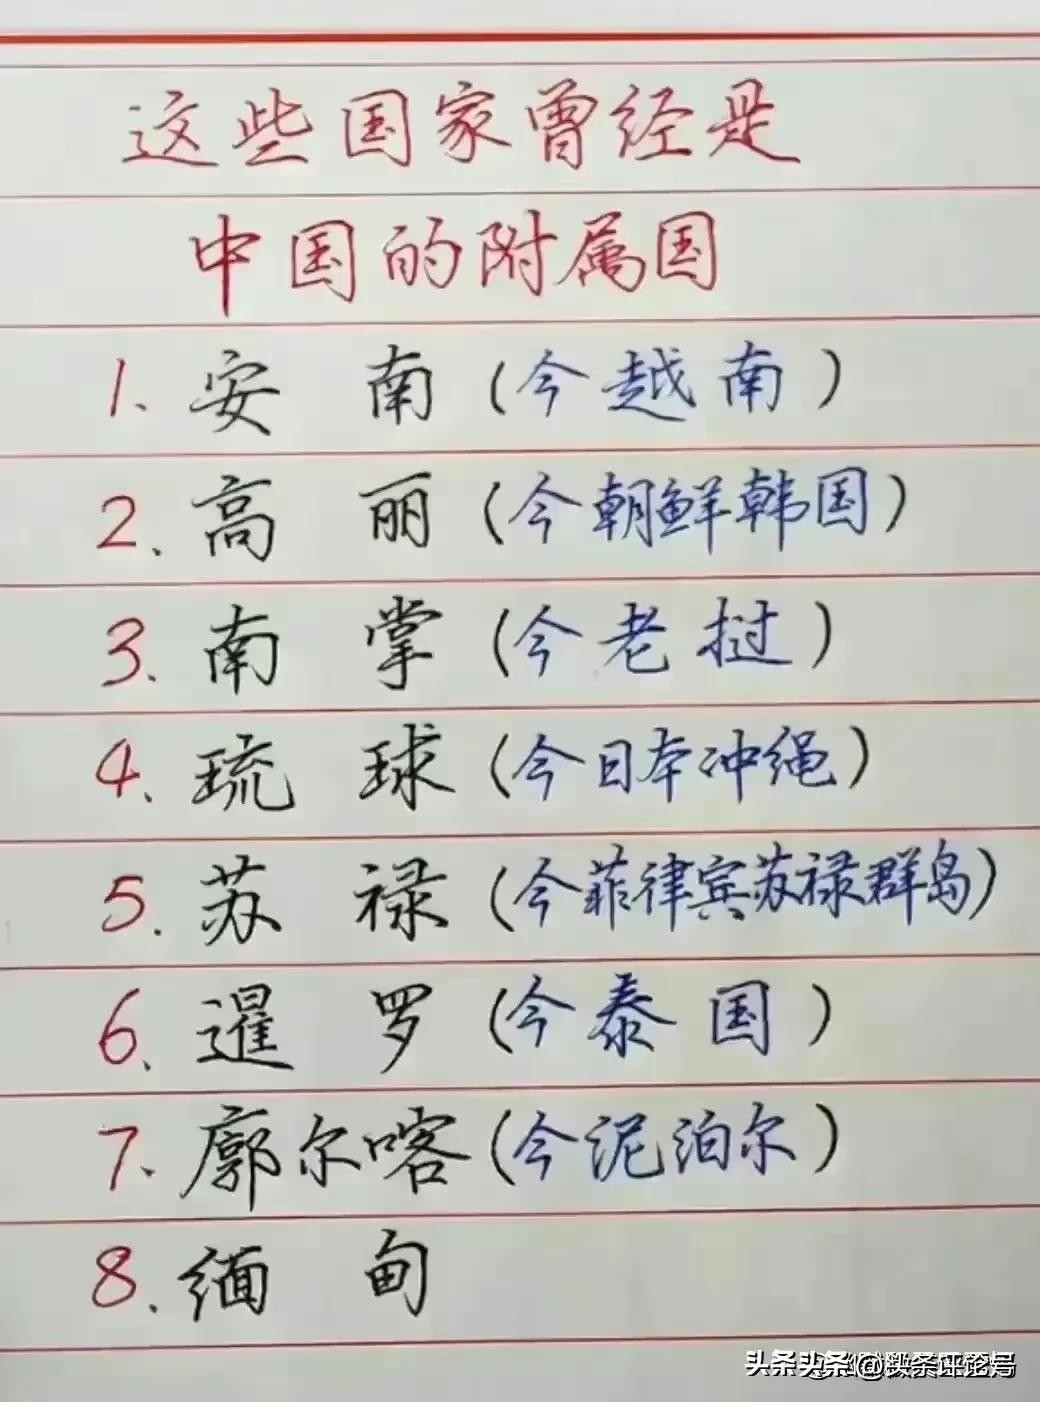 这些国家曾经是
中国的附属国
1、安南(今越南)
2、高丽(今朝鲜韩国)
3、南掌(今老挝)
4、琉球(今日本冲绳)
5、苏禄(今菲律宾苏禄群岛)
6、暹罗(今泰国)
7、廓尔喀(今泥泊尔)
8、缅甸
头条头条@头条评论号